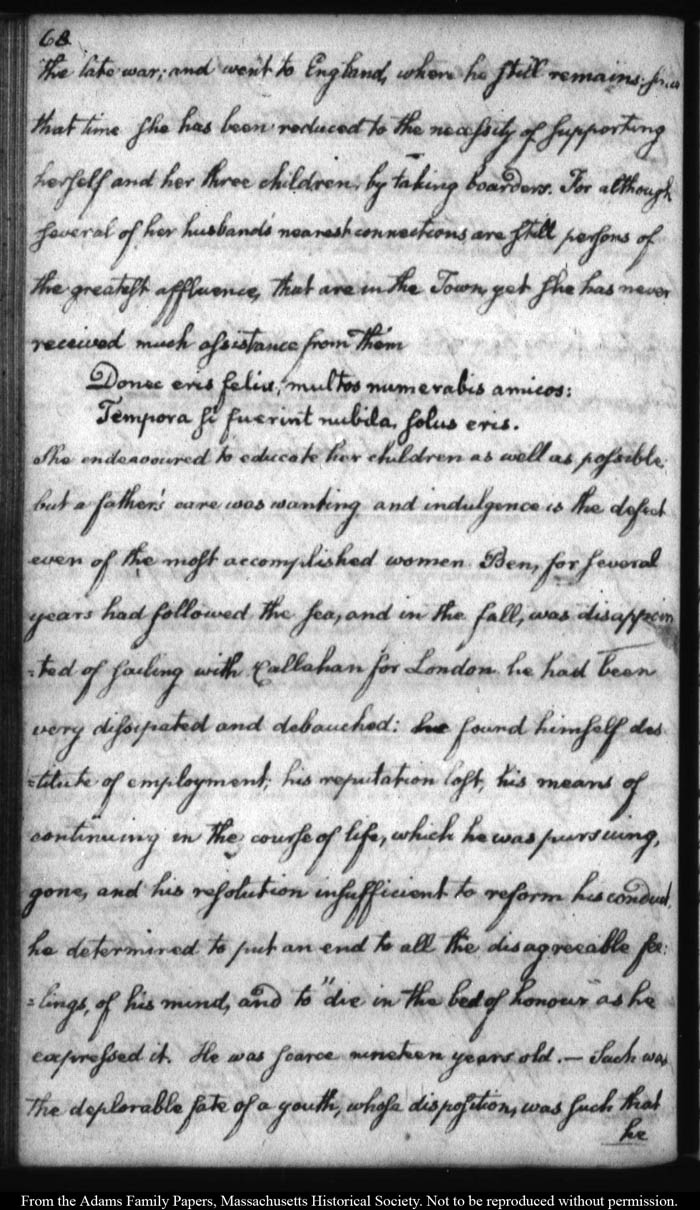 68
the late war; and went to England, where he still remains: since
that time she has been reduced to the necessity of supporting
herself and her three children, by taking boarders. For although
several of her husband's nearest connections are still persons of
the greatest affluence, that are in the Town, yet she has never
received much assistance from them
Donec eris felix, multos numerabis amicos:
Tempora si fuerint nubila, solus eris.
She endeavoured to educate her children as well as possible,
but a father's care was wanting and indulgence is the defect
even of the most accomplished women. Ben, for several
years had followed the sea, and in the fall, was disappoin
-ted of sailing with Callahan for London he had been
very dissipated and debauched: he found himself des
-titute of employment; his reputation lost, his means of
continuing in the course of life, which he was pursuing,
gone, and his resolution insufficient to reform his conduct,
he determined to put an end to all the disagreeable fee:
=lings, of his mind, and to "die in the bed of honour" as he
expressed it. He was scarce nineteen years old. — Such was
the deplorable fate of a youth, whose disposition, was such that
he
From the Adams Family Papers, Massachusetts Historical Society. Not to be reproduced without permission.